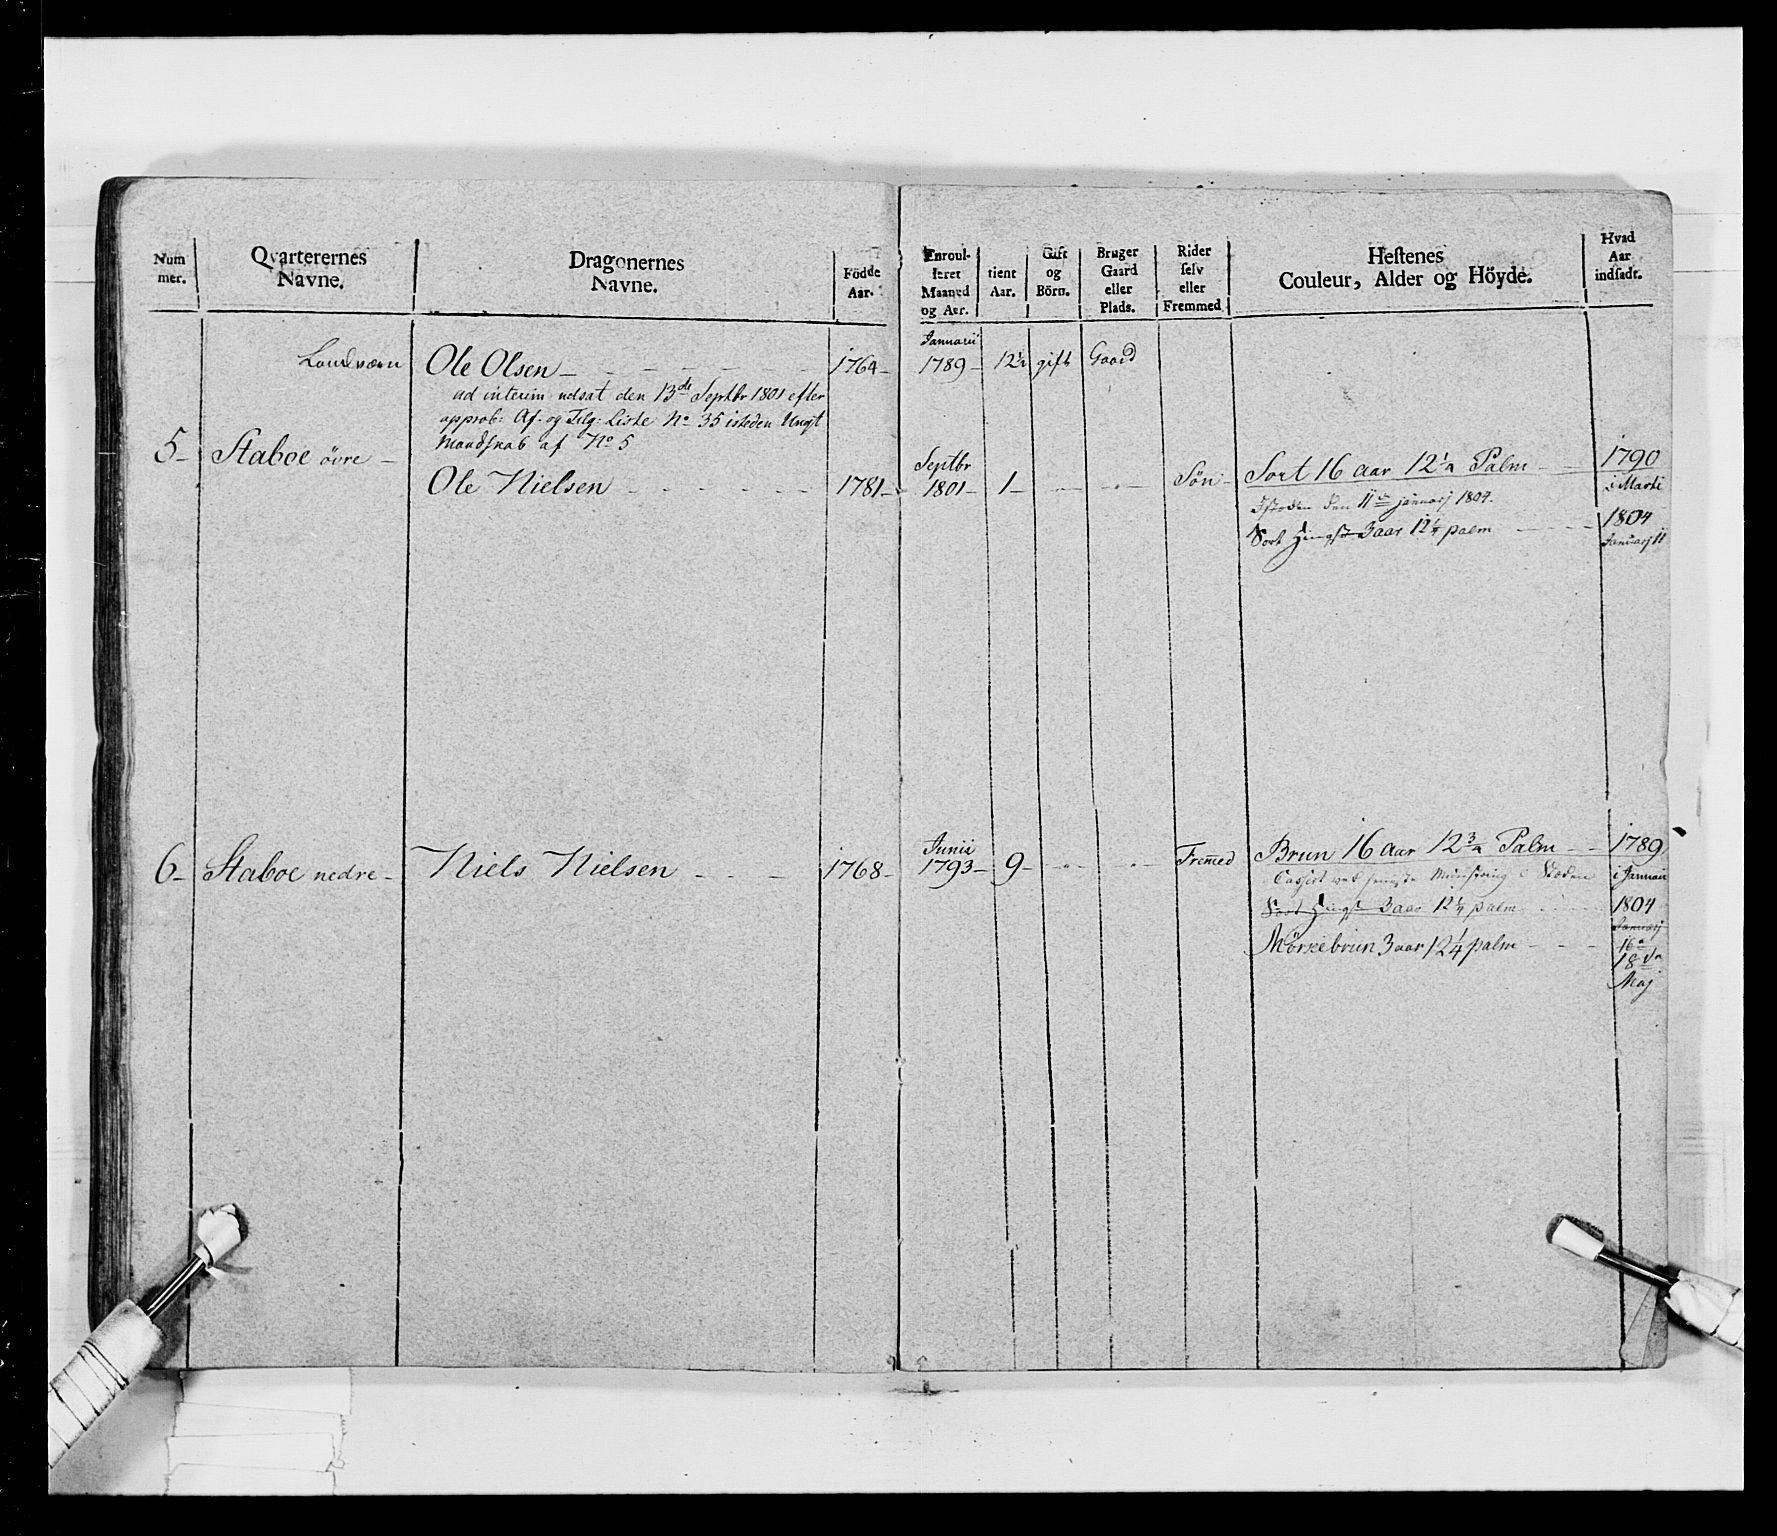 Num mer.
Qvarterernes Navne.
Dragonernes Navne.
Födde Aar.
Enroul- leret Maaned og Aar.
tient Aar.
Gift og Börn.
Bruger Gaard eller Plads.
Rider selv eller Fremmed.
Hestenes Couleur, Alder og Höyde.
Hvad Aar indsadt.
Landværn Ole Olsen 1764 Januarii 1789 12½ gift Gaard
ad interim udsat den 13de Septbr 1801 efter
approb: Af- og Tilg: Liste No 35 isteden Ungt
Mandskab af No 5
5 Staboe övre
Ole Nielsen 1781 Septbr 1801 1 Søn Sort 16 aar 12½ Palm 1790
i Marti
Isteden den 11te januarj 1804.
Sort Hingst 3 aar 12¼ palm 1804
Januarj 11
6 Staboe nedre Niels Nielsen 1768 Junii 1793 9 Fremed Brun 16 aar 12¾ Palm 1789
i Januari
Cassert ved Mønstring i Stæden
Sort Hingst 3 aar 12¼ palm 1804
Januarj
Mørkebrun 3 aar 12¼ palm
16
18de
Maj